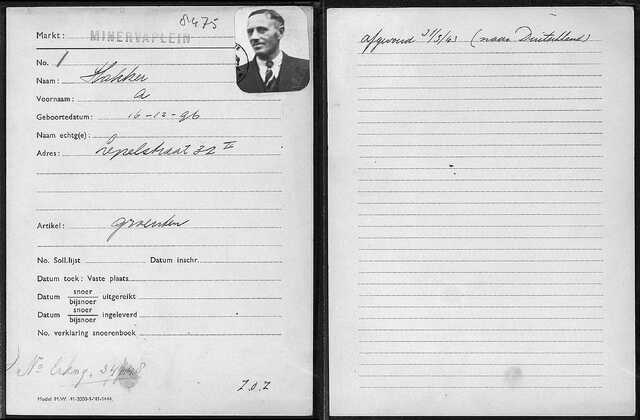 8475
Markt: MINERVAPLEIN
No. 1
Naam: Hakker
Voornaam: A
Geboortedatum: 16-12-96
Naam echtg(e):
Adres: Lepelstraat 32 II
Artikel: groenten
No. Soll.lijst Datum inschr.
Datum toek: Vaste plaats
Datum snoer
bijsnoer uitgereikt
Datum snoer
bijsnoer ingeleverd
No. verklaring snoerenboek
No
Z.O.Z
Model M.W.
afgevoerd 31/5/43 (naar Duitschland)